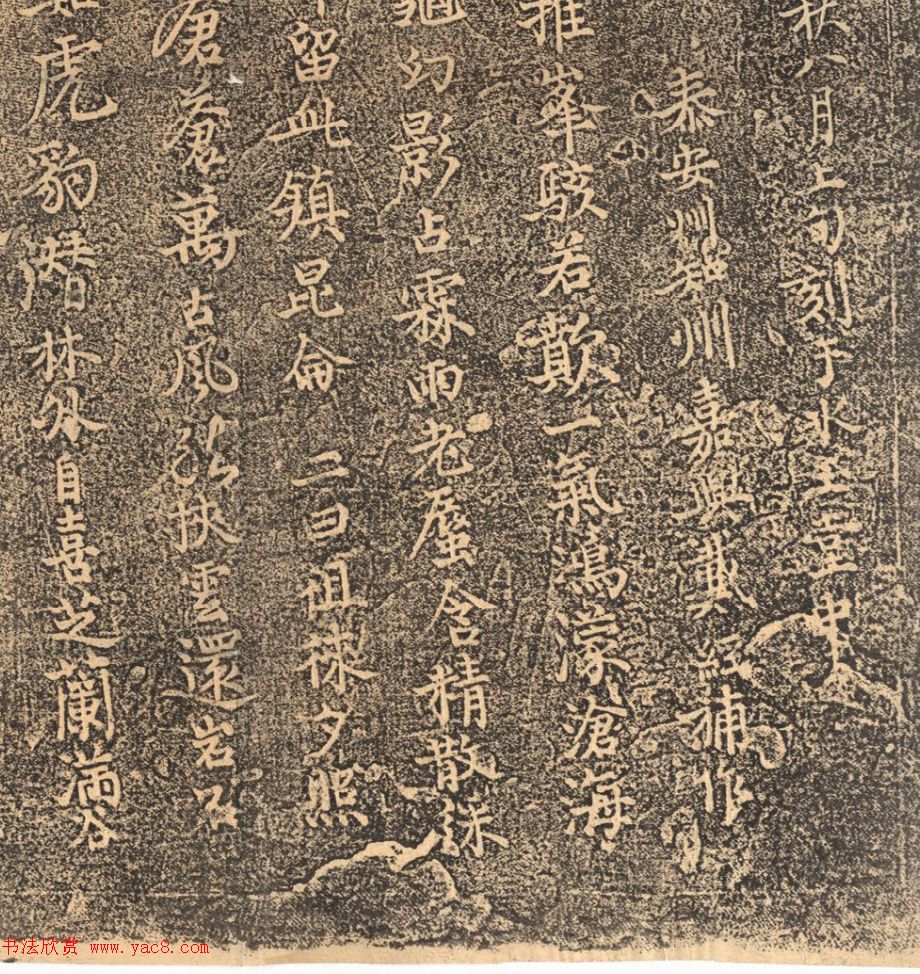 秋八月上旬刻于水玉堂中
泰安州知州嘉興戴經補作
推峯駭若欺一氣鴻濛滄海
幻影占霖雨老蜃含精散綵
留此鎮昆侖 二曰徂徠夕照
滄蒼萬古風致快雲還岩
虎豹潛林外自喜芝蘭滿谷
书法欣赏 www.yac8.com